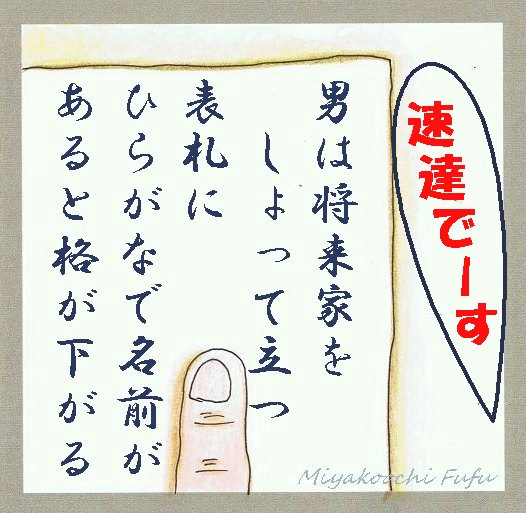 速達でーす
男は将来家を
しょって立つ
表札に
ひらがなで名前が
あると格が下がる
Miyakoochi Fufu